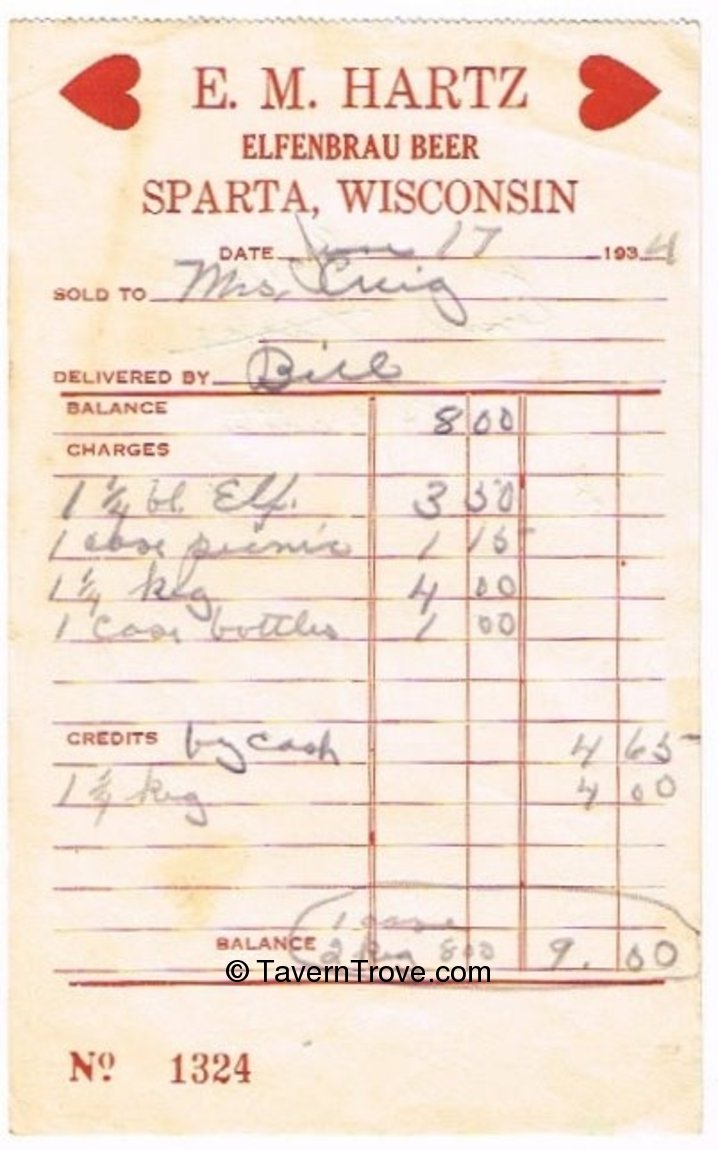 E. M. HARTZ
ELFENBRAU BEER
SPARTA, WISCONSIN
DATE June 17 1934
SOLD TO Mrs. Craig
DELIVERED BY Bill
BALANCE 8 00
CHARGES
1 1/4 bl. Elf. 3 50
1 case picnic 1 15
1 1/4 keg 4 00
1 case bottles 1 00
CREDITS by cash 4 65
1 1/4 keg 4 00
1 case
BALANCE 2 keg 8 00 9. 00
© TavernTrove.com
Nº 1324